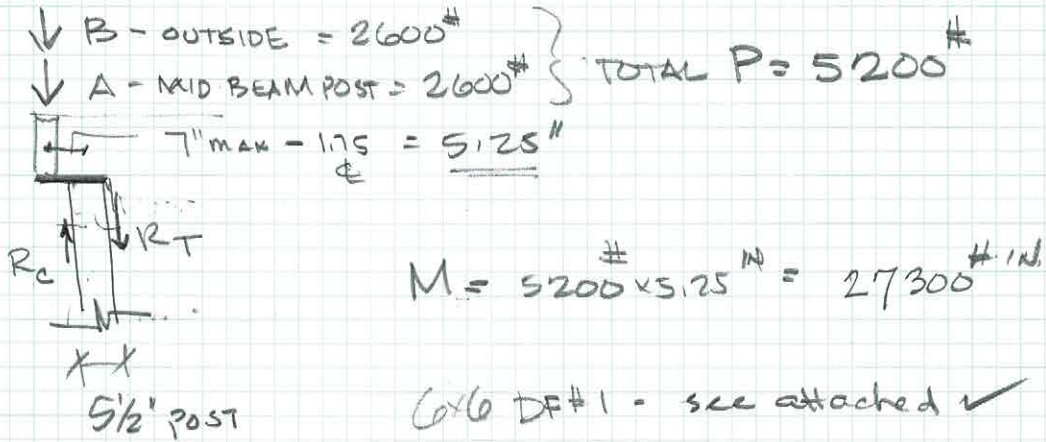 ↓ B - OUTSIDE = 2600#
↓ A - MID BEAM POST = 2600# } TOTAL P = 5200#
7" MAX - 1.75 = 5.25"
℄
RT
Rc
M = 5200# x 5.25 IN = 27300 # IN.
5 1/2" POST
6x6 DF#1 - see attached ✓